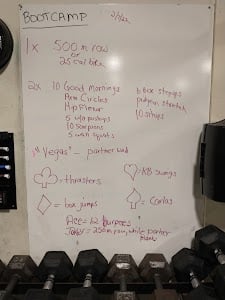 BOOTCAMP
1x 500m row
or
25 cal bike
2x 10 Good Mornings
Arm Circles
Hip Flexor
5 w/o pushups
10 Scorpions
5 wall squats
6 Box stepups
pigeon stretch
10 situps
"Vegas" - partner wod
= thrusters
= KB swings
= box jumps
= Curls
Ace = 12 Burpees
Joker = 250m row, while partner
plank